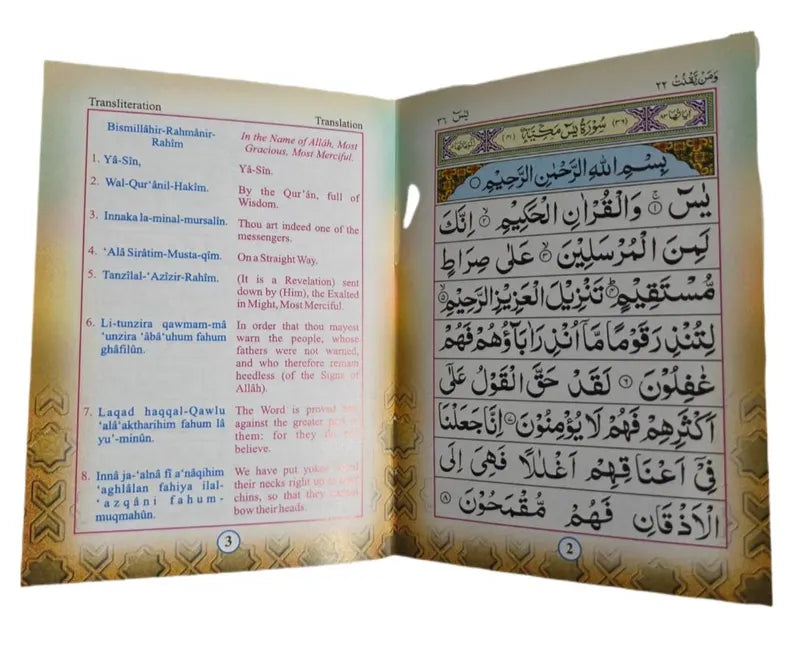 وَمَنْ يَّقْنُتْ ٢٢
يٰسٓ ٣٦
(٣٦) سُوْرَةُ يٰسٓ مَكِّيَّةٌ (٤١)
بِسْمِ اللّٰهِ الرَّحْمٰنِ الرَّحِيْمِ
يٰسٓ ۚ ١ وَالْقُرْاٰنِ الْحَكِيْمِ ۙ ٢ اِنَّكَ
لَمِنَ الْمُرْسَلِيْنَ ۙ ٣ عَلٰى صِرَاطٍ
مُّسْتَقِيْمٍ ؕ ٤ تَنْزِيْلَ الْعَزِيْزِ الرَّحِيْمِ ۙ ٥
لِتُنْذِرَ قَوْمًا مَّاۤ اُنْذِرَ اٰبَآؤُهُمْ فَهُمْ
غٰفِلُوْنَ ٦ لَقَدْ حَقَّ الْقَوْلُ عَلٰۤى
اَكْثَرِهِمْ فَهُمْ لَا يُؤْمِنُوْنَ ٧ اِنَّا جَعَلْنَا
فِيْۤ اَعْنَاقِهِمْ اَغْلٰلًا فَهِيَ اِلَى
الْاَذْقَانِ فَهُمْ مُّقْمَحُوْنَ ٨
2
Transliteration
Translation
Bismillâhir-Rahmânir-
Rahîm
1. Yâ-Sîn,
2. Wal-Qur'ânil-Hakîm.
3. Innaka la-minal-mursalîn.
4. ‘Alâ Sirâtim-Musta-qîm.
5. Tanzîlal-‘Azîzir-Rahîm.
6. Li-tunzira qawmam-mâ
'unzira 'âbâ'uhum fahum
ghâfilûn.
7. Laqad haqqal-Qawlu
'alâ'aktharihim fahum lâ
yu'-minûn.
8. Innâ ja-‘alnâ fî a‘nâqihim
'aghlâlan fahiya ilal-
'azqâni fahum-
muqmahûn.
In the Name of Allâh, Most
Gracious, Most Merciful.
Yâ-Sîn.
By the Qur'ân, full of
Wisdom.
Thou art indeed one of the
messengers.
On a Straight Way.
(It is a Revelation) sent
down by (Him), the Exalted
in Might, Most Merciful.
In order that thou mayest
warn the people, whose
fathers were not warned,
and who therefore remain
heedless (of the Signs of
Allâh).
The Word is proved
against the greater
them: for they do
believe.
We have put yokes
their necks right up to
chins, so that they
bow their heads.
3